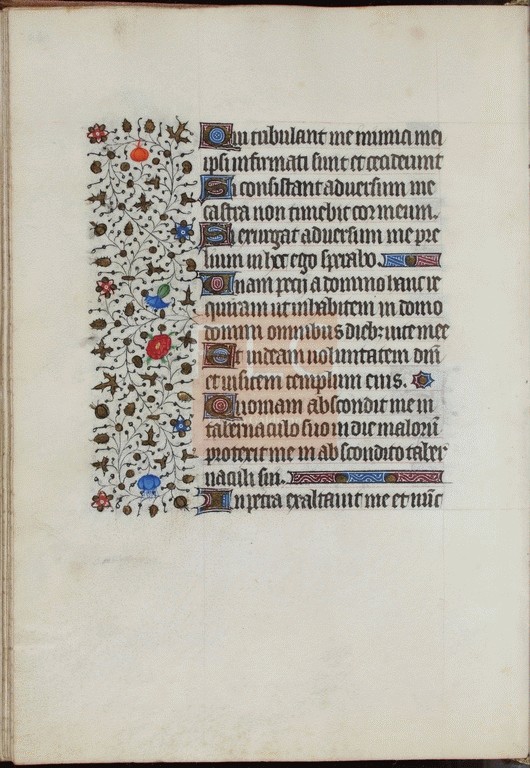 Qui tribulant me inimici mei
ipsi infirmati sunt et ceciderunt
Si consistant adversum me
castra non timebit cor meum.
Si exurgat adversum me pre
lium in hoc ego sperabo.
Unam pecii a domino hanc re
quiram ut inhabitem in domo
domini omnibus dieb; vite mee
Et videam voluntatem dni
et visitem templum eius.
Quoniam abscondit me in
tabernaculo suo in die maloru
protexit me in abscondito taber
naculi sui.
In petra exaltavit me et nunc